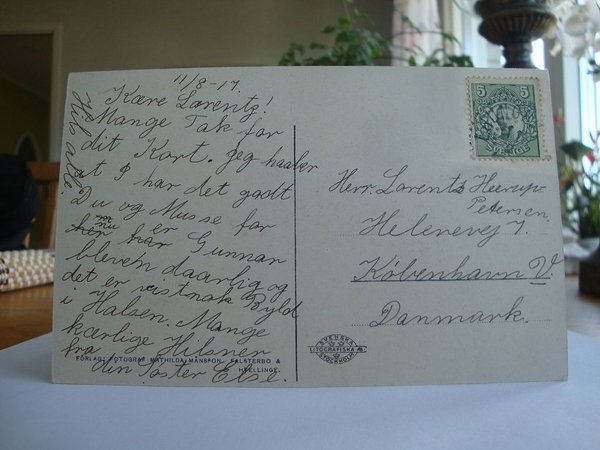 11/8-17.
Kære Lorentz!
Mange Tak for
dit Kort. Jeg haaber
at I har det godt
Du og Musse for
nu er
har Gunnar
bleven daarlig og
det er vistnok Byld
i Halsen. Mange
kærlige Hilsner
fra
din Søster Else.
Hils alle.
FÖRLAG: FOTOGRAF MATHILDA MÅNSSON, FALSTERBO &
HVELLINGE.
5 5
SVERIGE
Herr. Lorentz Heerup-
Petersen.
Helenevej 7.
København V.
Danmark.
SVENSKA
LITOGRAFISKA AB.
STOCKHOLM